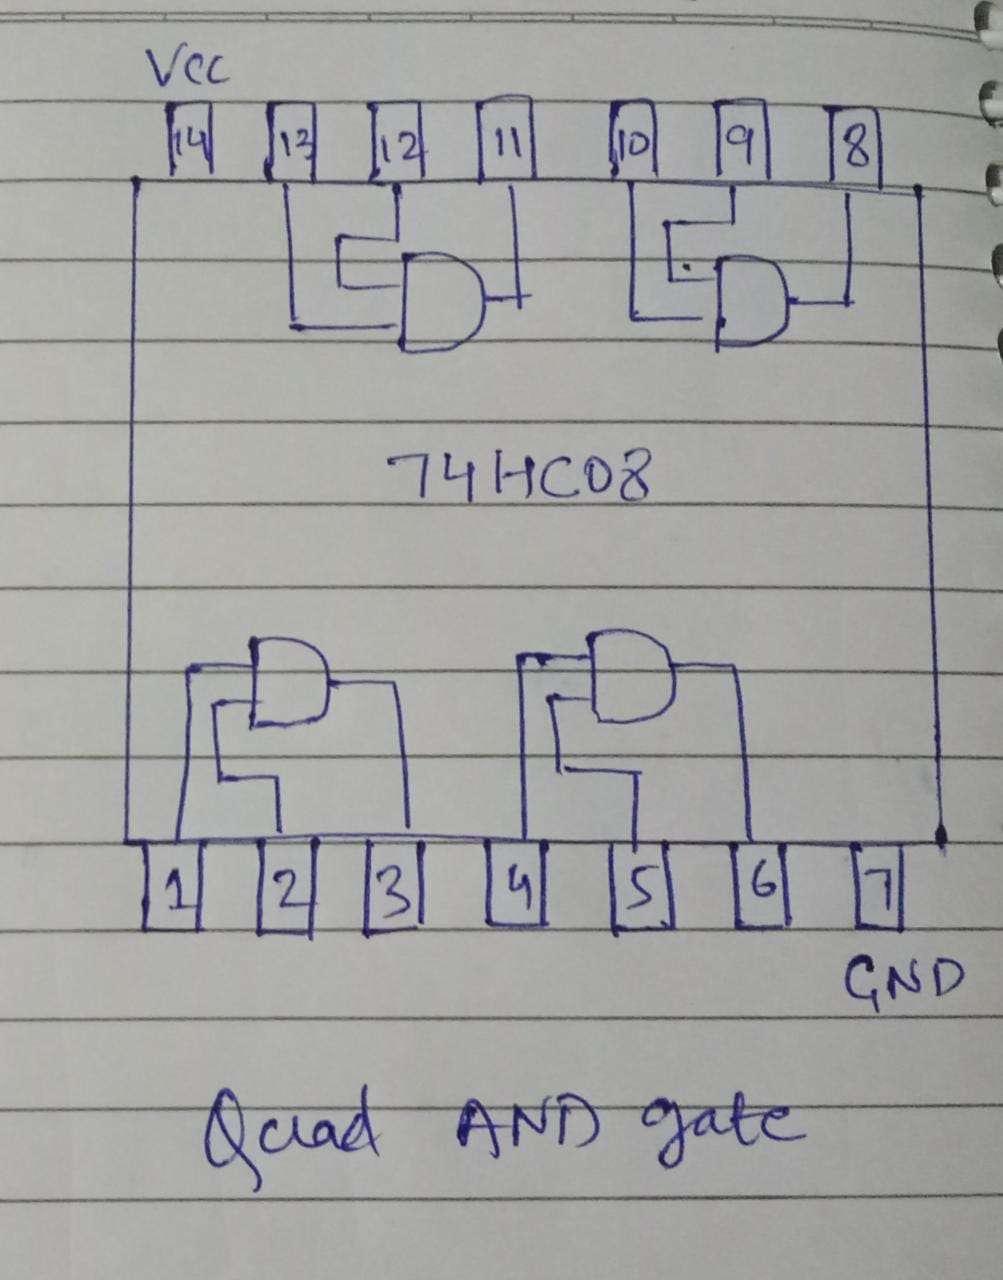 Vcc
14 13 12 11 10 9 8
74HC08
1 2 3 4 5 6 7
GND
Quad AND gate